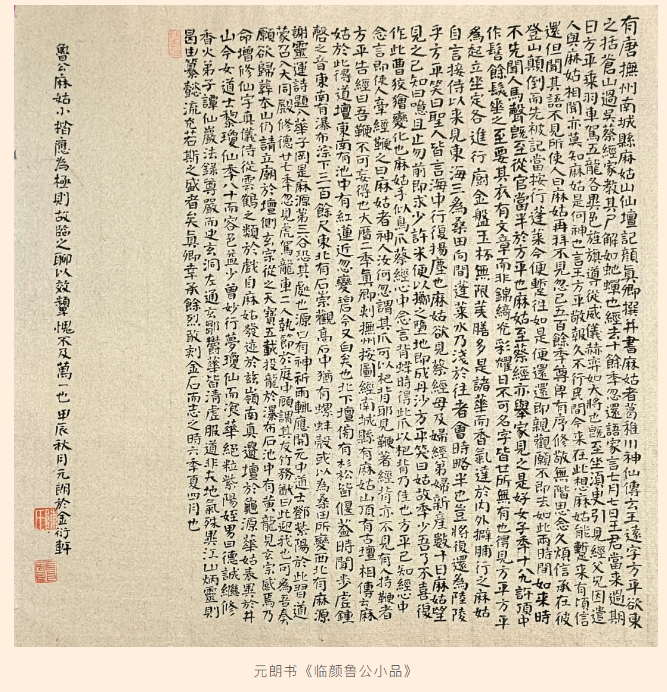 有唐撫州南城縣麻姑山仙壇記顏真卿撰并書麻姑者葛稚川神仙傳云王遠字方平欲東
之括蒼山過吳蔡經家教其尸解如蛇蟬也經去十餘年忽還語家言七月七日王君當來過期
日方平乘羽車駕五龍各異色旌旗導從威儀赫弈如大將也既至坐須臾引見經父兄因遣
人與麻姑相聞亦莫知麻姑是何神也言王方平敬報久不行民間今來在此想麻姑能暫來有頃信
還但聞其語不見所使人曰麻姑再拜不見忽已五百餘年尊卑有序修敬無階思念久煩信承在彼
登山顛倒而先被記當按行蓬萊今便暫往如是便還還即親觀願不即去如此兩時間如來時
不先聞人馬聲既至從官當半於方平也麻姑至蔡經亦舉家見之是好女子年十八九許頂中
作髻餘髮垂之至要其衣有文章而非錦綺光彩耀日不可名字皆世所無有也得見方平方平
為起立坐定各進行廚金盤玉杯無限美膳多是諸華而香氣達於內外擗脯行之麻姑
自言接侍以來見東海三為桑田向間蓬萊水乃淺於往者會時略半也豈將復還為陸陵
乎方平笑曰聖人皆言海中行復揚塵也麻姑欲見蔡經母及婦經弟婦新產數十日麻姑望
見之已知曰噫且止勿前即求少許米便以擲之墮地即成丹沙方平笑曰姑故年少吾了不喜復
作此曹狡獪變化也麻姑手似鳥爪蔡經心中念言背蛘時得此爪以杷背乃佳也方平已知經心中
念言即使人牽經鞭之曰麻姑者神人汝何忽謂其爪可以杷背耶見鞭著經背亦不見有人持鞭者
方平告經曰吾鞭不可妄得也大曆三年真卿刺撫州按圖經南城縣有麻姑山頂有古壇相傳云麻
姑於此得道壇東南有池中有紅蓮近忽變碧今又白矣池北下壇傍有杉松皆偃蓋時聞步虛鍾
磬之音東南有瀑布淙下三百餘尺東北有石崇觀高石中猶有螺蚌殼或以為桑田所變西北有麻源
謝靈運詩題入華子岡是麻源第三谷恐其處也源口有神祈雨輒應開元中道士鄧紫陽於此習道
蒙召入大同殿修德廿七年忽見虎駕龍車二人執節於庭中顧謂其友竹務猷曰此迎我也可為吾奏
願欲歸葬本山仍請立廟於壇側玄宗從之天寶五載投龍於瀑布石池中有黃龍見玄宗感焉乃
命增修仙宇真儀侍從雲鶴之類於戲自麻姑發跡於茲嶺南真遺壇於龜源華姑表異於井
山今女道士黎瓊仙年八十而容色益少曾妙行夢瓊仙而湌華絕粒紫陽姪男曰德誠繼修
香火弟子譚仙巖法籙尊嚴而史玄洞左通玄鄒鬱華皆清虛服道非夫地氣殊異江山炳靈則
曷由纂懿流光若斯之盛者矣真卿幸承餘烈敢刻金石而志之時六年夏四月也
魯公麻姑小楷應為極則故臨之聊以效顰愧不及萬一也甲辰秋月元朗於金衍軒
元朗书《临颜鲁公小品》